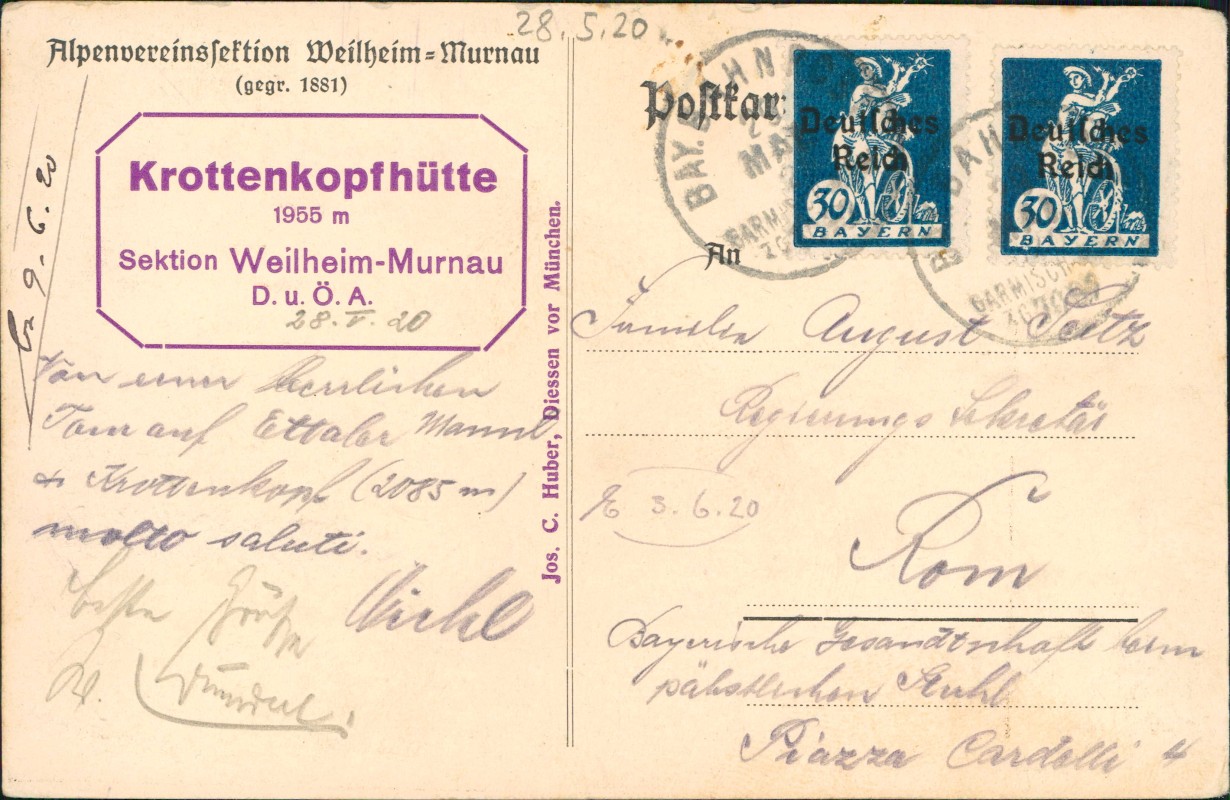 28.5.20
Alpenvereinssektion Weilheim=Murnau
(gegr. 1881)
Krottenkopfhütte
1955 m
Sektion Weilheim-Murnau
D. u. Ö. A.
28.V.20
9.6.20
Von einer herrlichen
Tour auf Ettaler Mannl
& Krottenkopf (2085 m)
molto saluti.
beste Grüße
Jos. C. Huber, Diessen vor München.
Postkar
BAY. BAHN
MAI
GARMISCH
Deutsches
Reich
30
BAYERN
Deutsches
Reich
30
BAYERN
BAHN
GARMISCH
An
Familie August Seitz
Regierungs Sekretär
3.6.20
Rom
Bayerische Gesandtschaft beim
päbstlichen Stuhl
Piazza Cardelli 4